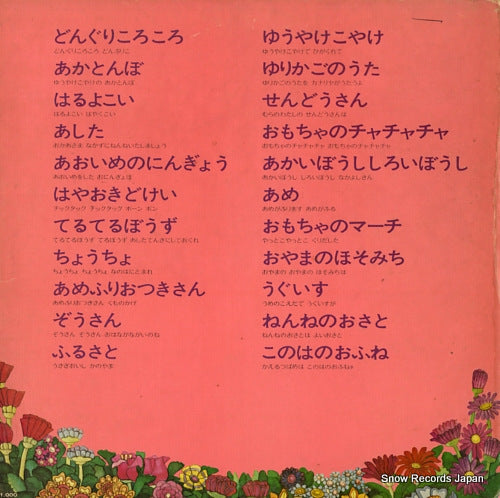 どんぐりころころ
どんぐりころころ どんぶりこ
あかとんぼ
ゆうやけこやけの あかとんぼ
はるよこい
はるよこい はやくこい
あした
おかあさま なかずにねんねいたしましょう
あおいめのにんぎょう
あおいめをした おにんぎょは
はやおきどけい
チックタック チックタック ボーン ボン
てるてるぼうず
てるてるぼうず てるぼうず あしたてんきにしておくれ
ちょうちょ
ちょうちょ ちょうちょ なのはにとまれ
あめふりおつきさん
あめふりおつきさん くものかげ
ぞうさん
ぞうさん ぞうさん おはながながいのね
ふるさと
うさぎおいし かのやま
ゆうやけこやけ
ゆうやけこやけで ひがくれて
ゆりかごのうた
ゆりかごのうたを カナリヤがうたうよ
せんどうさん
むらのわたしの せんどうさんは
おもちゃのチャチャチャ
おもちゃのチャチャチャ おもちゃのチャチャチャ
あかいぼうししろいぼうし
あかいぼうし しろいぼうし なかよしさん
あめ
あめがふります あめがふる
おもちゃのマーチ
やっとこやっとこ くりだした
おやまのほそみち
おやまの おやまの ほそみちは
うぐいす
うめのこえだで うぐいすが
ねんねのおさと
ねんねのおさとは よいおさと
このはのおふね
かえるつばめは このはのおふね
1,000
Snow Records Japan